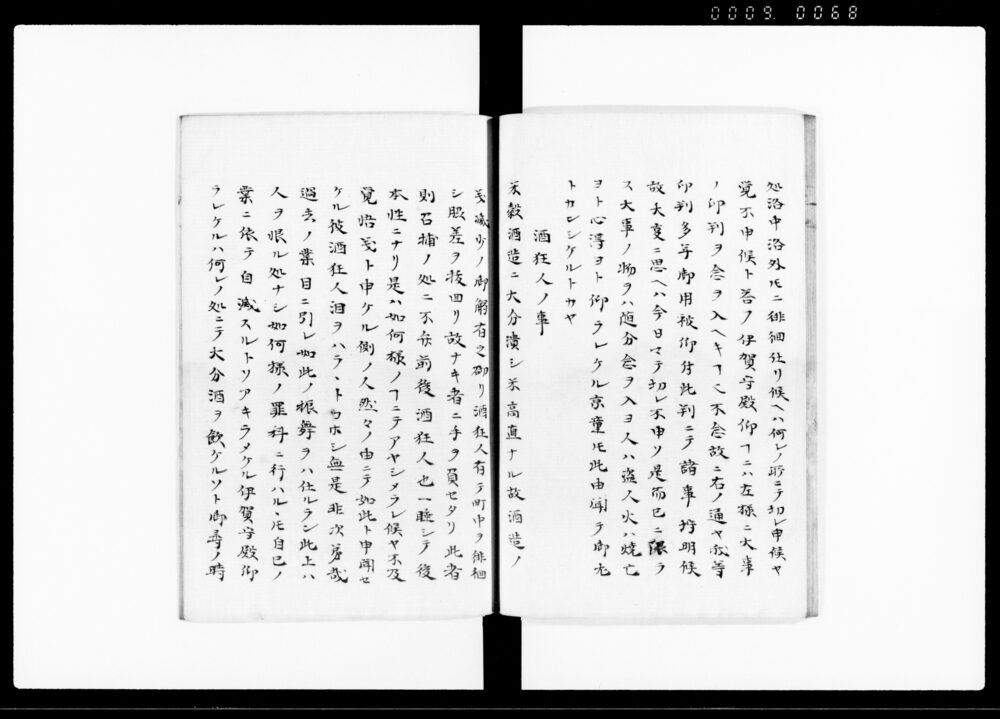 0009.0068
処洛中洛外ㇳモニ徘徊仕リ候ヘハ何レノ所ニテ切レ申候ヤ
覚不申候ト答フ伊賀守殿仰フニハ左様ニ大事
ノ印判ヲ念ヲ入ヘキヿ也不念故ニ右ノ通ヤ我等
印判多年御用被仰付此判ニテ諸事埒明候
故大変ニ思ヘハ今日マテ切レ不申ソ是而已ニ限ラ
ス大事ノ物ヲハ随分念ヲ入ヨ人ハ盗人火ハ焼亡
ヨト心得ヨト仰ラレケル京童ㇳモ此由聞テ御尤
トカンシケルトカヤ
酒狂人ノ事
米穀酒造ニ大分潰シ米高直ナル故酒造ノ
義減少ノ御觸有之砌リ酒狂人有テ町中ヲ徘徊
シ脇差ヲ抜回リ故ナキ者ニ手ヲ負セタリ此者
則召捕ノ処ニ不弁前後酒狂人也一睡シテ後
本性ニナリ是ハ如何様ノヿニテアヤシメラレ候ヤ不及
覚悟義ト申ケル側ノ人然々ノ由ニテ如此ト申聞セ
ケル彼酒狂人泪ヲハラヽトコホシ無是非次第哉
過去ノ業因ニ引レ如此ノ振舞ヲハ仕ルラン此上ハ
人ヲ恨ル処ナシ如何様ノ罪科ニ行ハルヽㇳモ自己ノ
業ニ依テ自滅スルトソアキラメケル伊賀守殿仰
ラレケルハ何レノ処ニテ大分酒ヲ飲ケルソト御尋ノ時